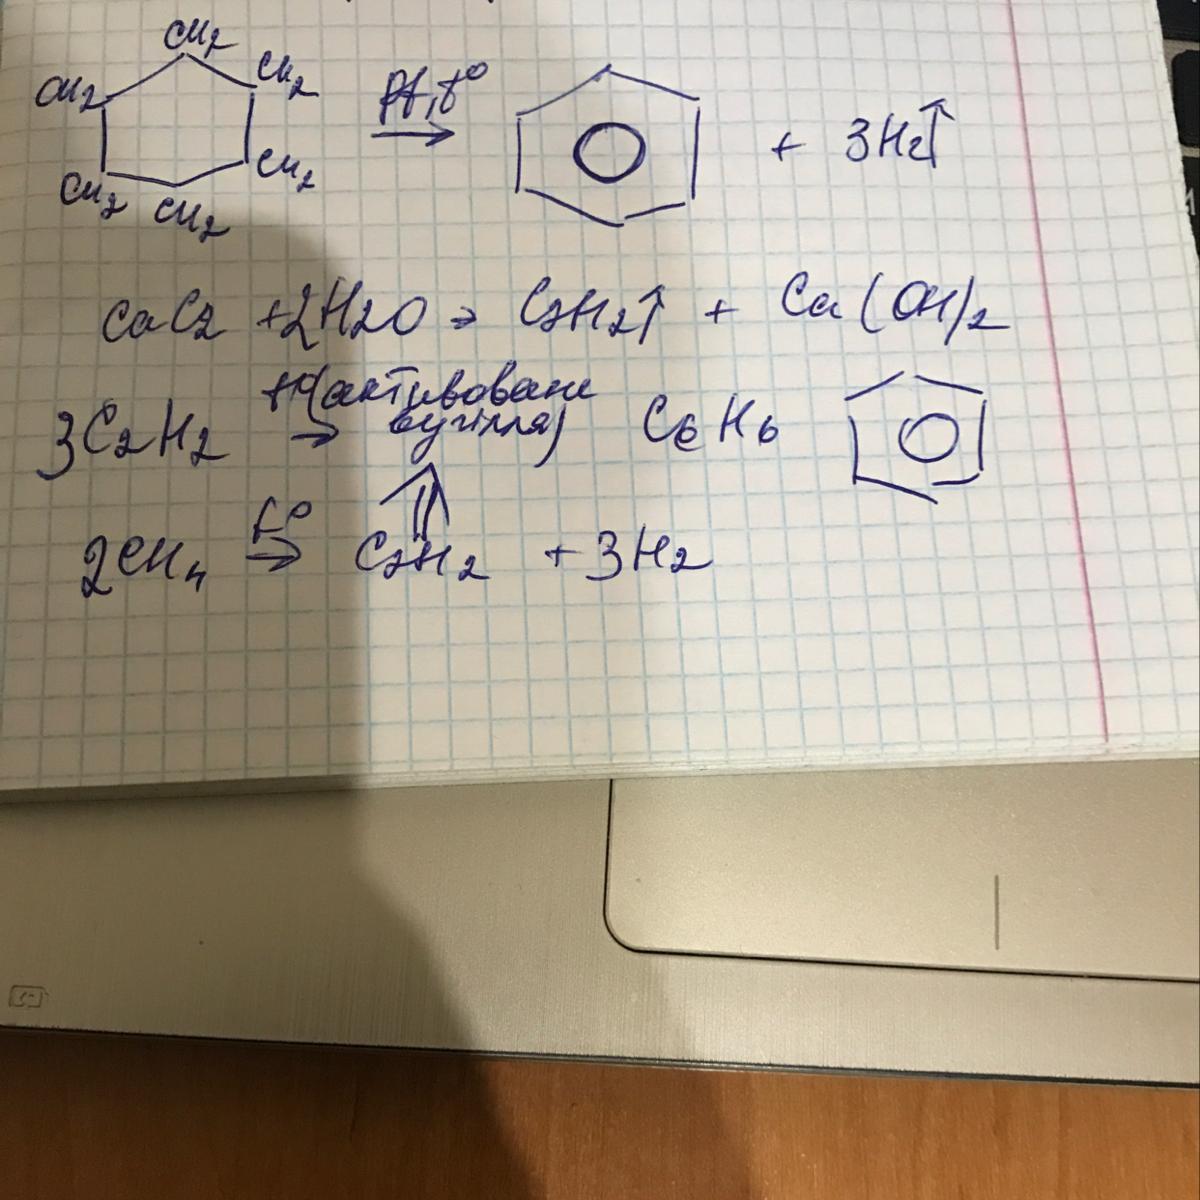 CH2 CH2 CH2 CH2 CH2 CH2 Pt, t° → + 3H2↑
CaC2 + 2H2O → C2H2↑ + Ca(OH)2
3C2H2 → (активоване вугілля) C6H6
2CH4 t° → C2H2 + 3H2